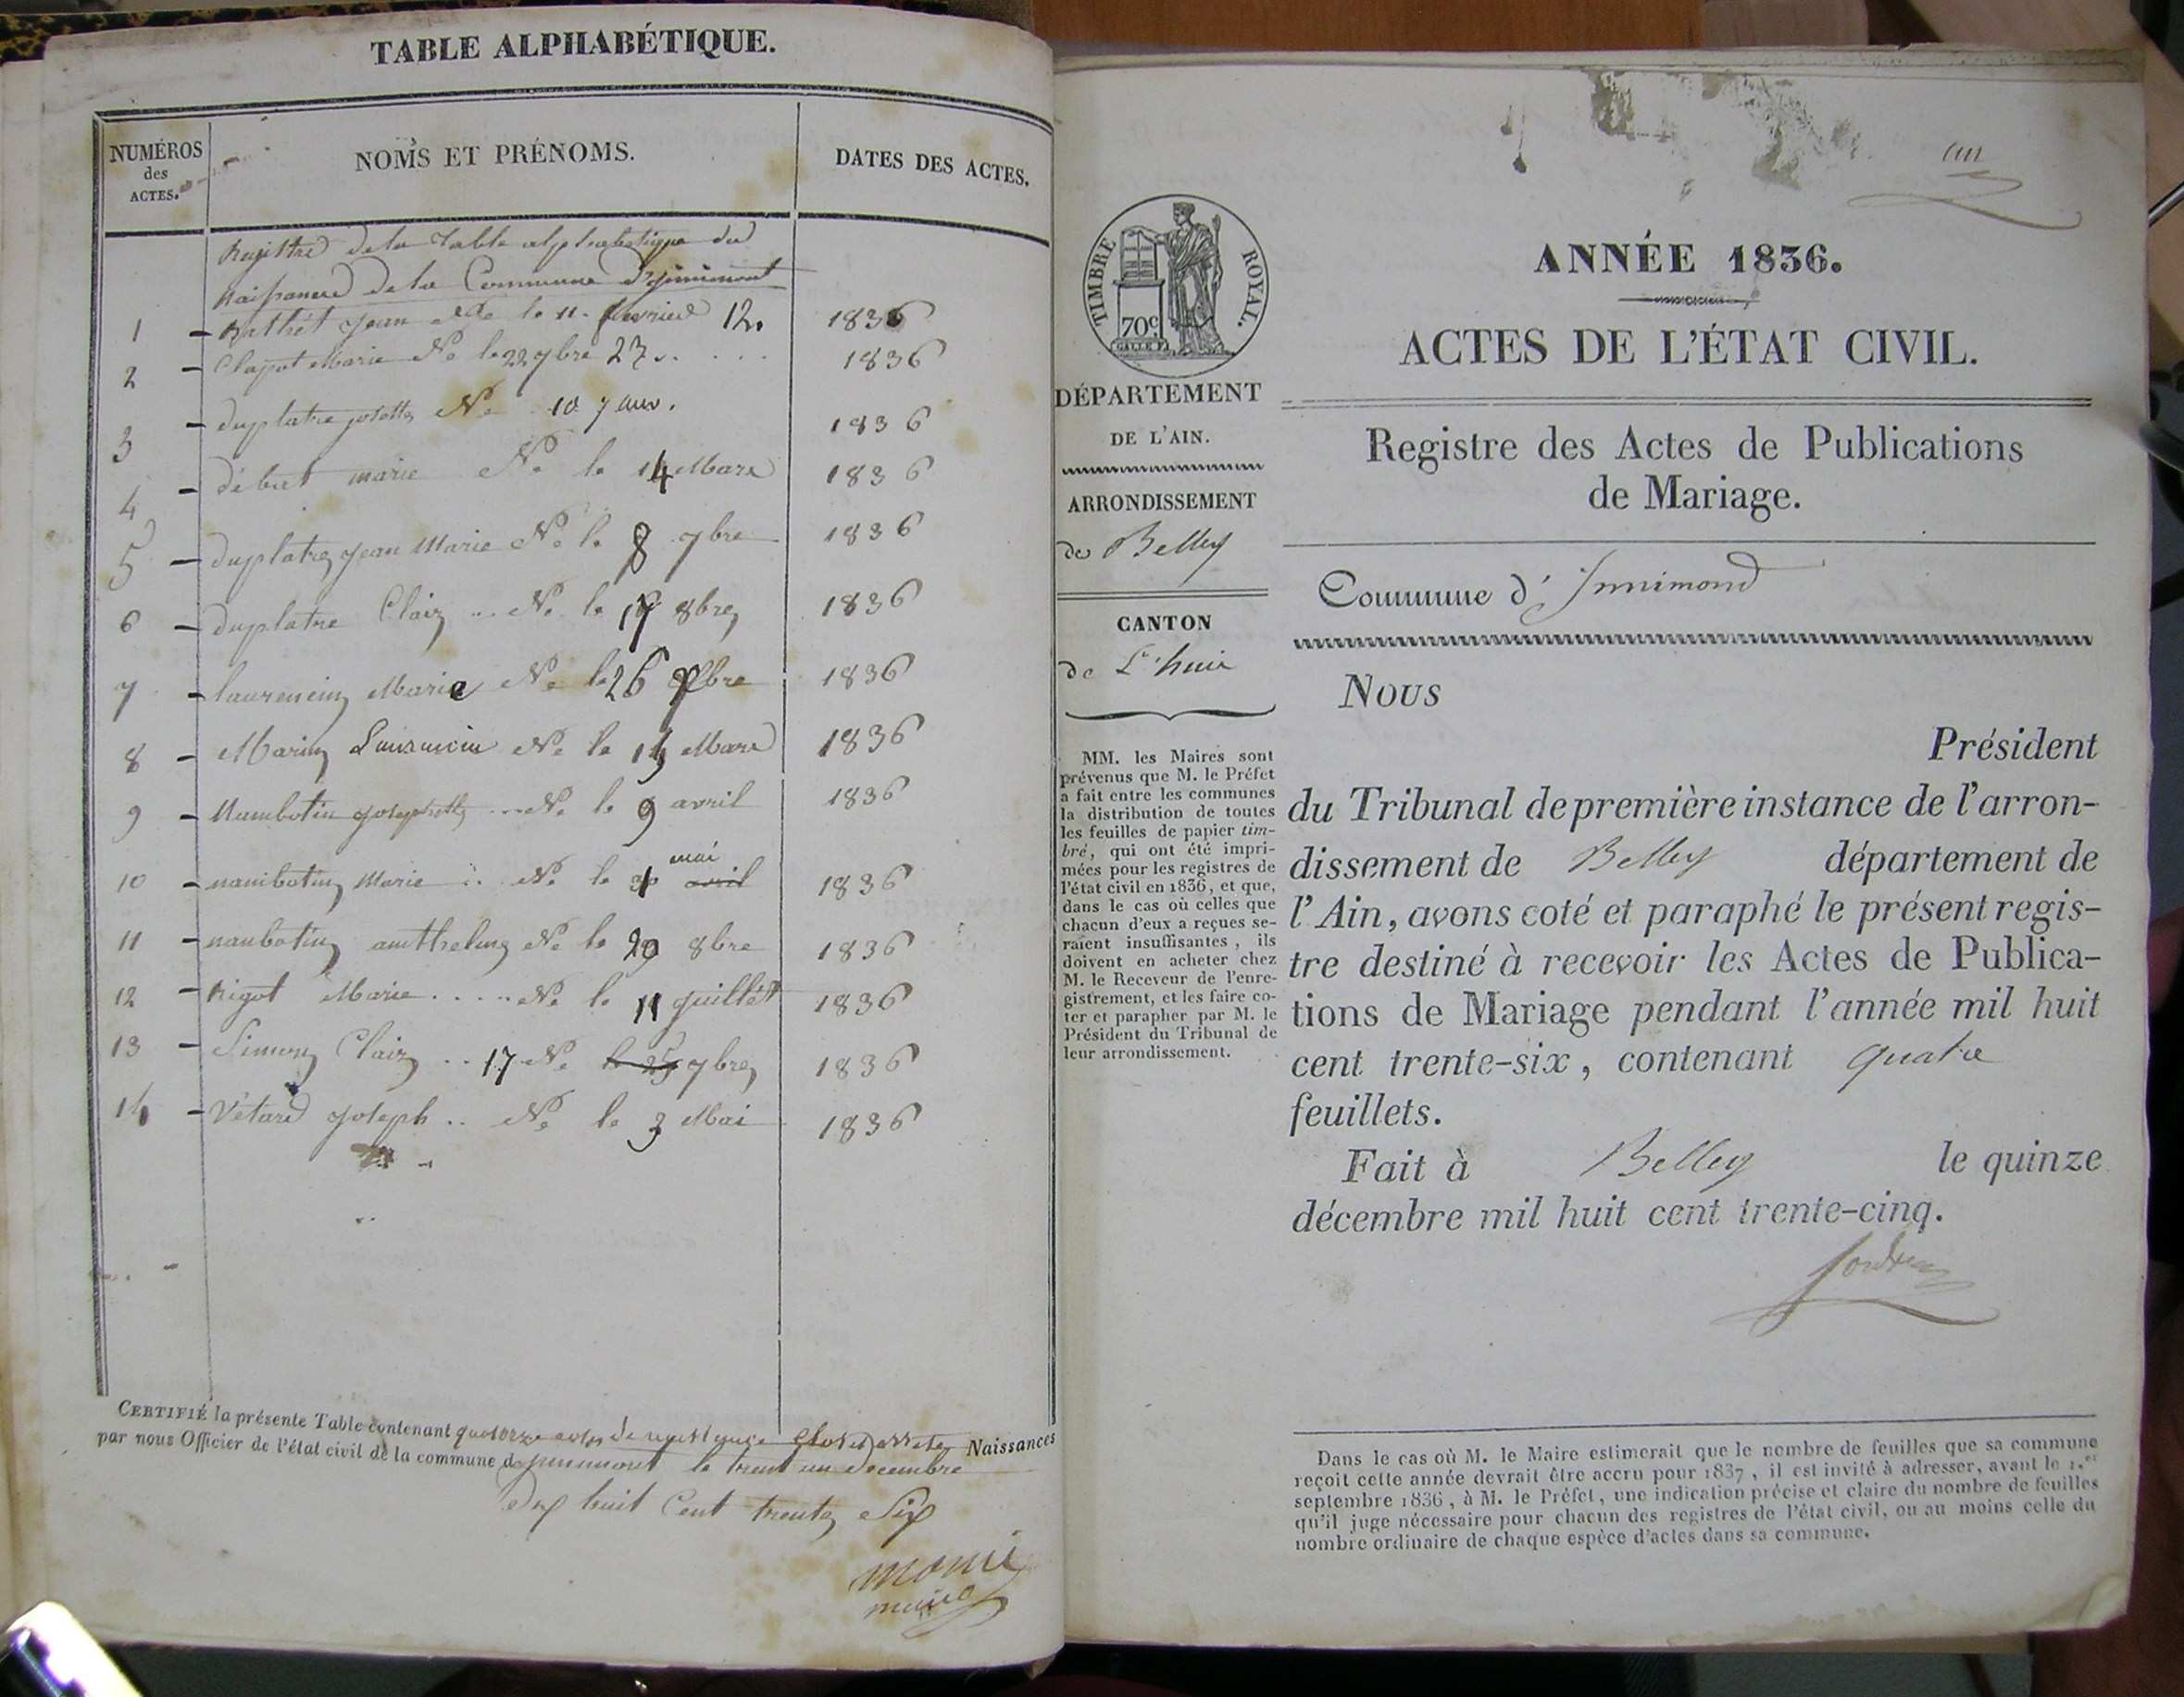 TABLE ALPHABÉTIQUE.
NUMÉROS
des
ACTES.
NOMS ET PRÉNOMS.
DATES DES ACTES.
Registre de la Table alphabetique du
Naissance de la Commune d'jnnimont
1 - Rathét jean Né le 11 février 12. 1836
2 - Clapot Marie Né le 22 9bre 27 1836
3 - duplatre josette Né 10 janv. 1836
4 - début marie Né le 14 Mars 1836
5 - duplatre jean Marie Né le 8 7bre 1836
6 - duplatre Clair Né le 8bre 1836
7 - laurencin Marie Né le 26 1836
8 - Marin Laurancin Né le Mars 1836
9 - Nambotin josephette Né le 9 avril 1836
10 - nambotin Marie Né le mai avril 1836
11 - nanbotin anthelme Né le 8bre 1836
12 - Rigot Marie Né le 11 juillét 1836
13 - Simon Clair 17 Né le 25 7bre 1836
14 - Vétard joseph Né le 3 Mai 1836
CERTIFIÉ la présente Table contenant quatorze actes de naissance Clos et arreté Naissances
par nous Officier de l'état civil de la commune d jnnimont le trent un decembre
huit Cent trente Six
monie
maire
un
TIMBRE ROYAL.
70c
ANNÉE 1836.
ACTES DE L'ÉTAT CIVIL.
DÉPARTEMENT
DE L'AIN.
ARRONDISSEMENT
de Belley
CANTON
de L'huis
MM. les Maires sont
prévenus que M. le Préfet
a fait entre les communes
la distribution de toutes
les feuilles de papier tim-
bré, qui ont été impri-
mées pour les registres de
l'état civil en 1836, et que,
dans le cas où celles que
chacun d'eux a reçues se-
raient insuffisantes, ils
doivent en acheter chez
M. le Receveur de l'enre-
gistrement, et les faire co-
ter et parapher par M. le
Président du Tribunal de
leur arrondissement.
Registre des Actes de Publications
de Mariage.
Commune d' Innimond
Nous
Président
du Tribunal de première instance de l'arron-
dissement de Belley département de
l'Ain, avons coté et paraphé le présent regis-
tre destiné à recevoir les Actes de Publica-
tions de Mariage pendant l'année mil huit
cent trente-six, contenant quatre
feuillets.
Fait à Belley le quinze
décembre mil huit cent trente-cinq.
Dans le cas où M. le Maire estimerait que le nombre de feuilles que sa commune
reçoit cette année devrait être accru pour 1837, il est invité à adresser, avant le 1.er
septembre 1836, à M. le Préfet, une indication précise et claire du nombre de feuilles
qu'il juge nécessaire pour chacun des registres de l'état civil, ou au moins celle du
nombre ordinaire de chaque espèce d'actes dans sa commune.